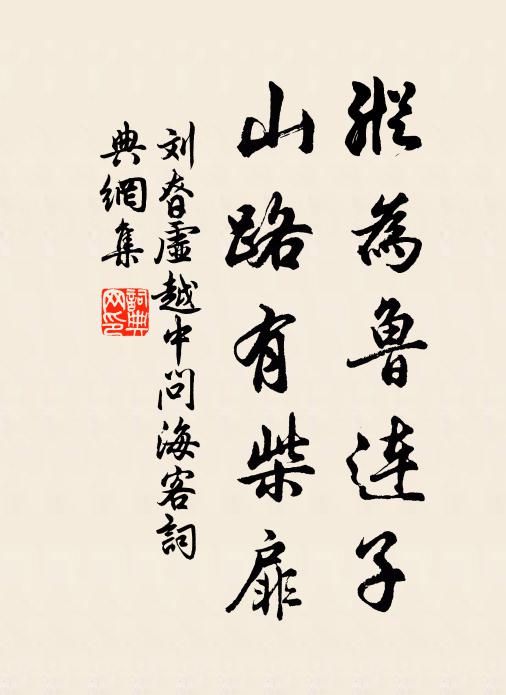 縱為魯連子
山路有柴扉
刘眘虛越中问海客詞
典網集
詞典
网印